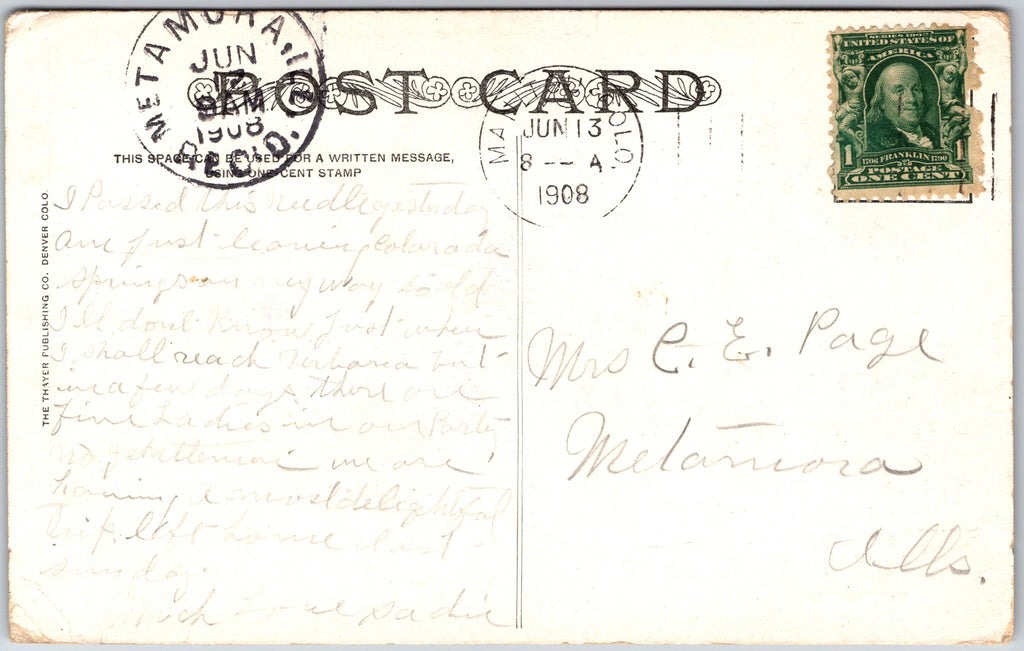 METAMORA, ILL.
JUN
9 AM
1908
REC'D.
POST CARD
MA COLO.
JUN 13
8 -- A
1908
SERIES 1902
UNITED STATES OF
AMERICA
1 1706 FRANKLIN 1790 1
POSTAGE
ONE CENT
THIS SPACE CAN BE USED FOR A WRITTEN MESSAGE,
USING ONE CENT STAMP
THE THAYER PUBLISHING CO. DENVER COLO.
I Passed this needle yesterday
am just leaving Colorada
springs on my way to old
Ill dont Know Just when
I shall reach Urbana but
in a few days there are
Five Ladies in our Party
no Jentlemen we are
having a most delightful
trip left home last
sunday.
much Love Sadie
Mrs C. E. Page
Metamora
Ills.